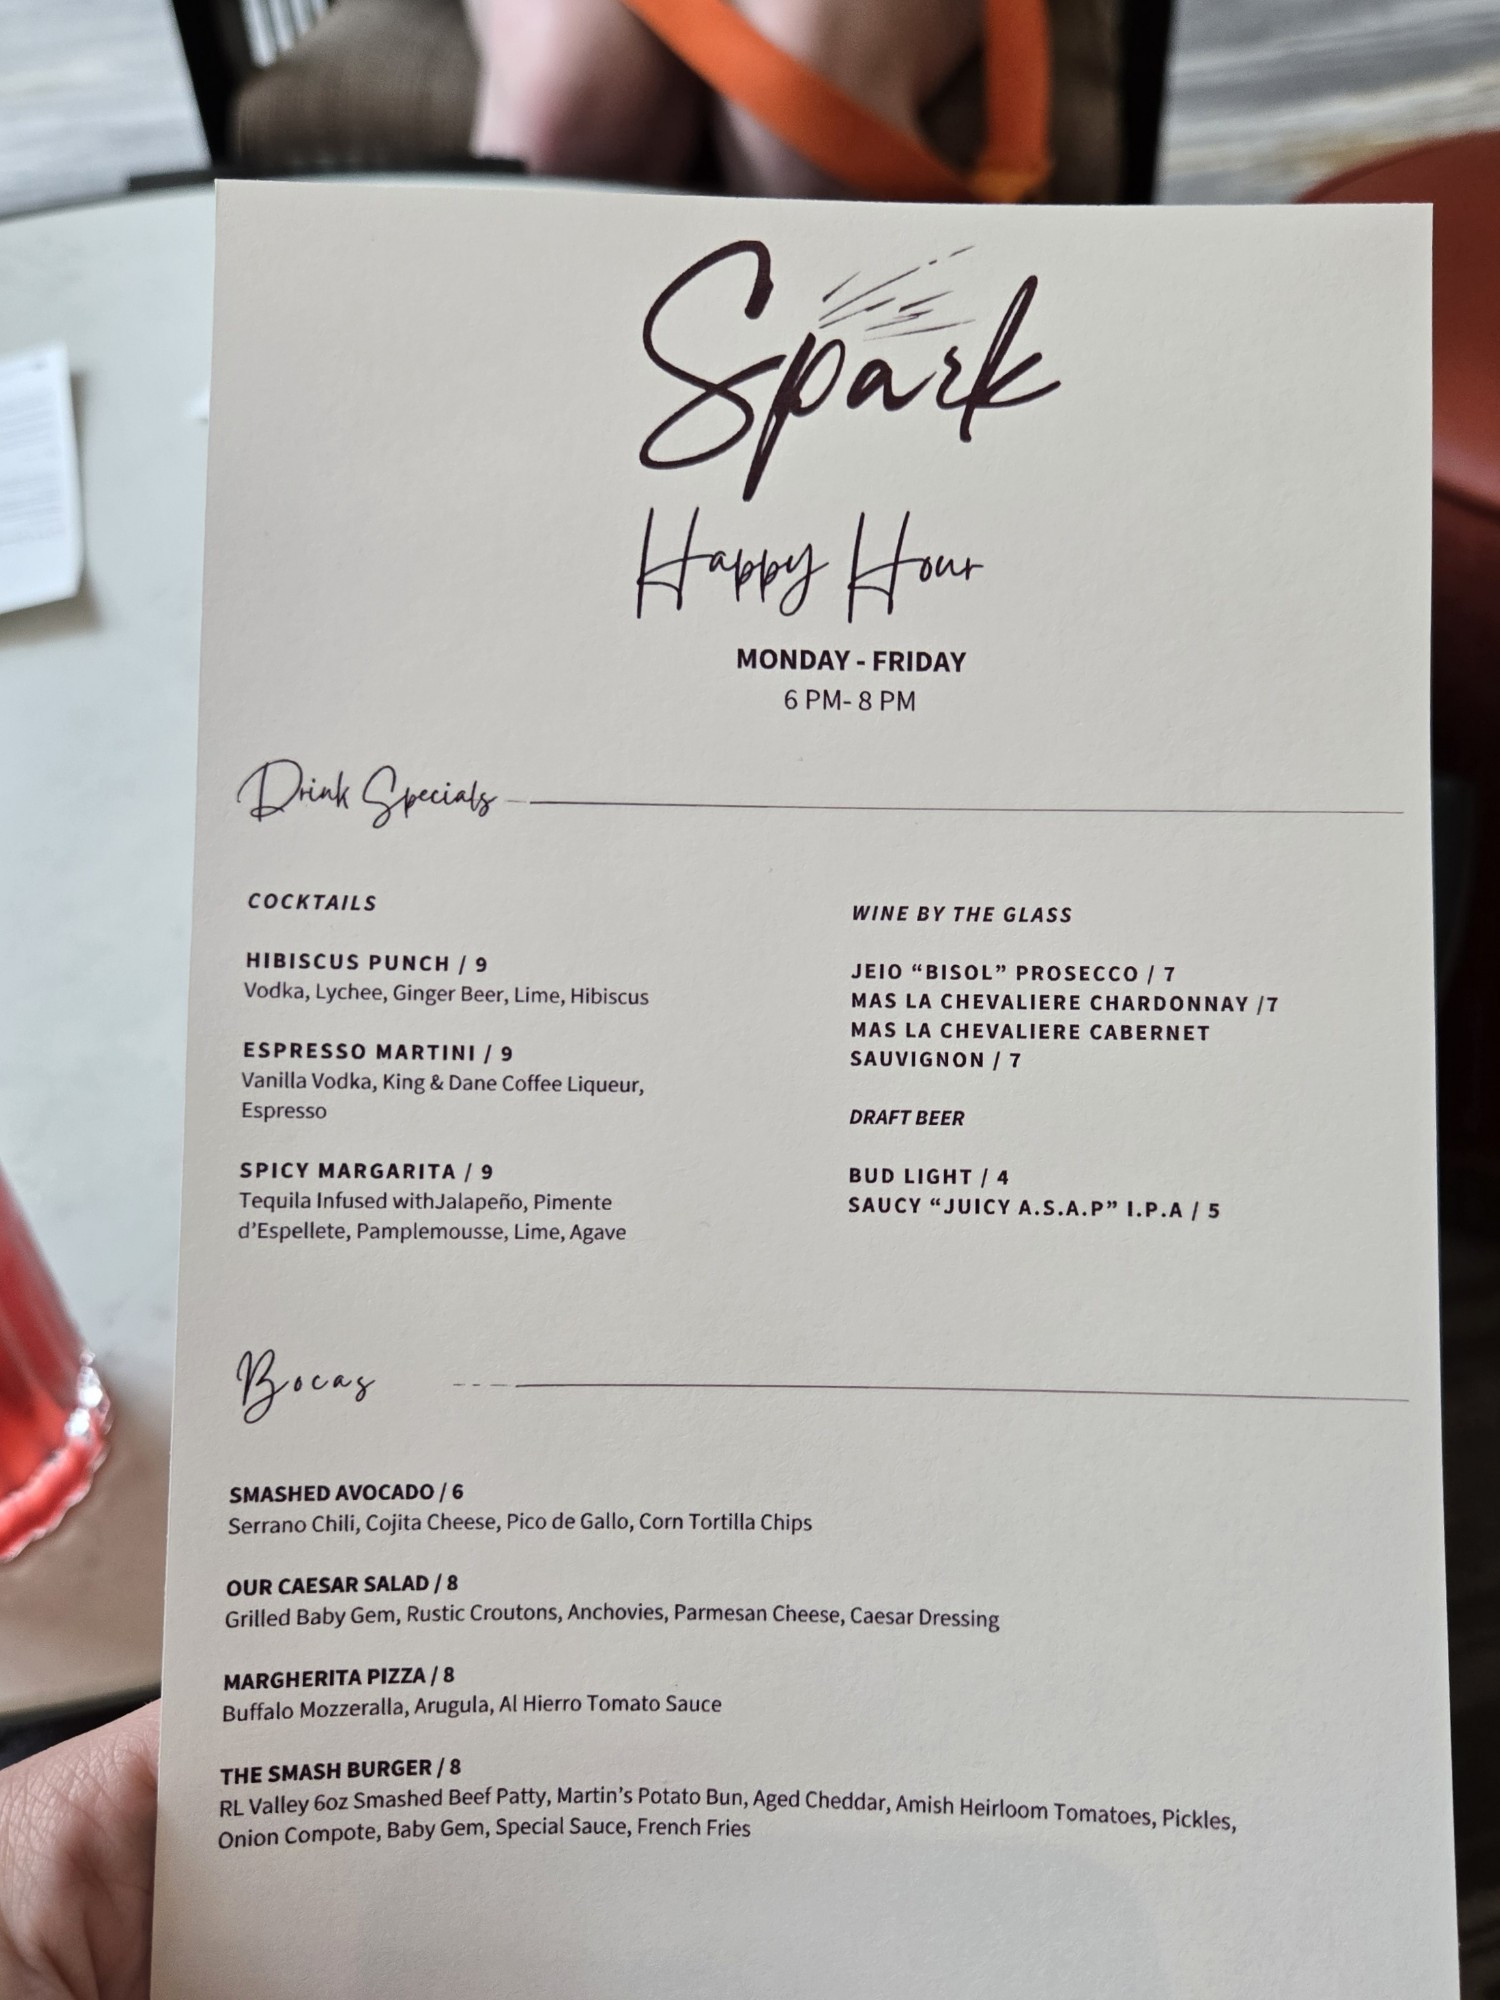 Spark
Happy Hour
MONDAY - FRIDAY
6 PM- 8 PM
Drink Specials
COCKTAILS
HIBISCUS PUNCH / 9
Vodka, Lychee, Ginger Beer, Lime, Hibiscus
ESPRESSO MARTINI / 9
Vanilla Vodka, King & Dane Coffee Liqueur,
Espresso
SPICY MARGARITA / 9
Tequila Infused withJalapeño, Pimente
d'Espellete, Pamplemousse, Lime, Agave
WINE BY THE GLASS
JEIO “BISOL” PROSECCO / 7
MAS LA CHEVALIERE CHARDONNAY /7
MAS LA CHEVALIERE CABERNET
SAUVIGNON / 7
DRAFT BEER
BUD LIGHT / 4
SAUCY “JUICY A.S.A.P” I.P.A / 5
Bocas
SMASHED AVOCADO / 6
Serrano Chili, Cojita Cheese, Pico de Gallo, Corn Tortilla Chips
OUR CAESAR SALAD / 8
Grilled Baby Gem, Rustic Croutons, Anchovies, Parmesan Cheese, Caesar Dressing
MARGHERITA PIZZA / 8
Buffalo Mozzeralla, Arugula, Al Hierro Tomato Sauce
THE SMASH BURGER / 8
RL Valley 6oz Smashed Beef Patty, Martin's Potato Bun, Aged Cheddar, Amish Heirloom Tomatoes, Pickles,
Onion Compote, Baby Gem, Special Sauce, French Fries